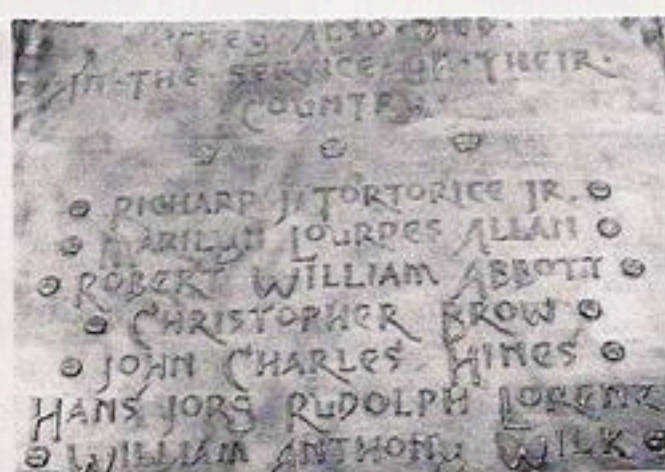 THEY ALSO DIED.
IN·THE·SERVICE·OF·THEIR·
COUNTRY
RICHARD J. TORTORICE JR.
MARILYN LOURDES ALLAN
ROBERT WILLIAM ABBOTT
CHRISTOPHER BROW
JOHN CHARLES HINES
HANS JORG RUDOLPH LORENZ
WILLIAM ANTHONY WILK